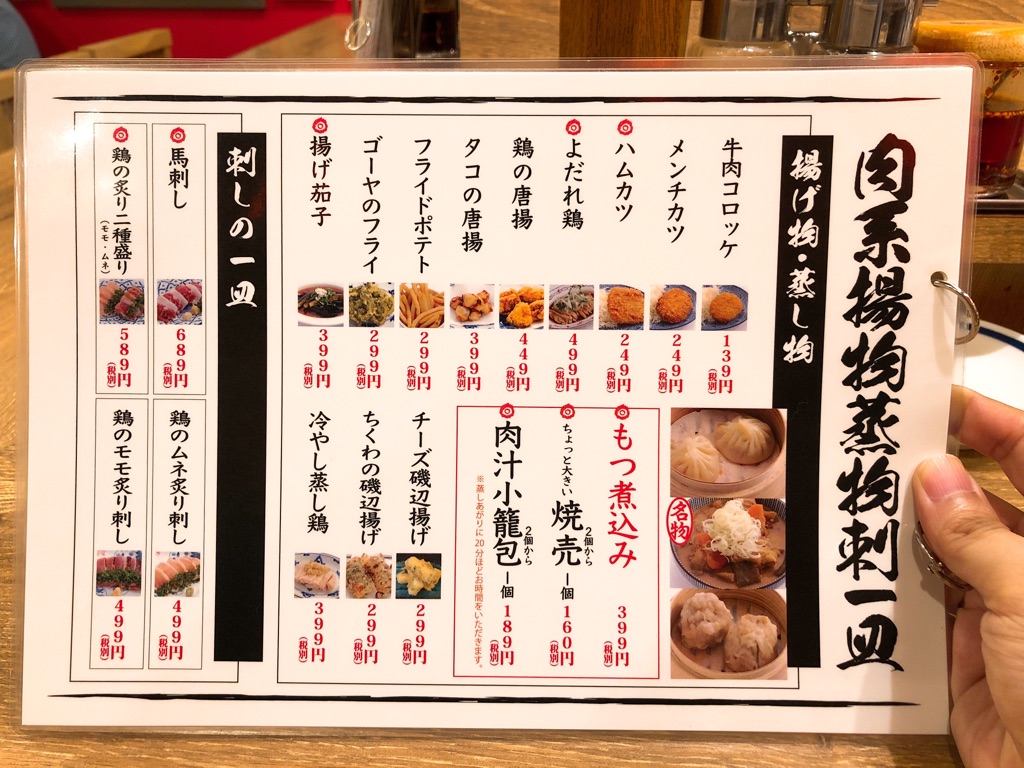 肉系揚物蒸物刺一皿
揚げ物・蒸し物
牛肉コロッケ
139円
(税別)
メンチカツ
249円
(税別)
ハムカツ
249円
(税別)
よだれ鶏
499円
(税別)
鶏の唐揚
449円
(税別)
タコの唐揚
399円
(税別)
フライドポテト
299円
(税別)
ゴーヤのフライ
299円
(税別)
揚げ茄子
399円
(税別)
名物
もつ煮込み
399円
(税別)
ちょっと大きい
焼売
2個から
一個
160円
(税別)
肉汁小籠包
2個から
一個
189円
(税別)
※蒸しあがりに20分ほどお時間をいただきます。
チーズ磯辺揚げ
299円
(税別)
ちくわの磯辺揚げ
299円
(税別)
冷やし蒸し鶏
399円
(税別)
刺しの一皿
馬刺し
689円
(税別)
鶏の炙り二種盛り
(モモ・ムネ)
589円
(税別)
鶏のムネ炙り刺し
499円
(税別)
鶏のモモ炙り刺し
499円
(税別)